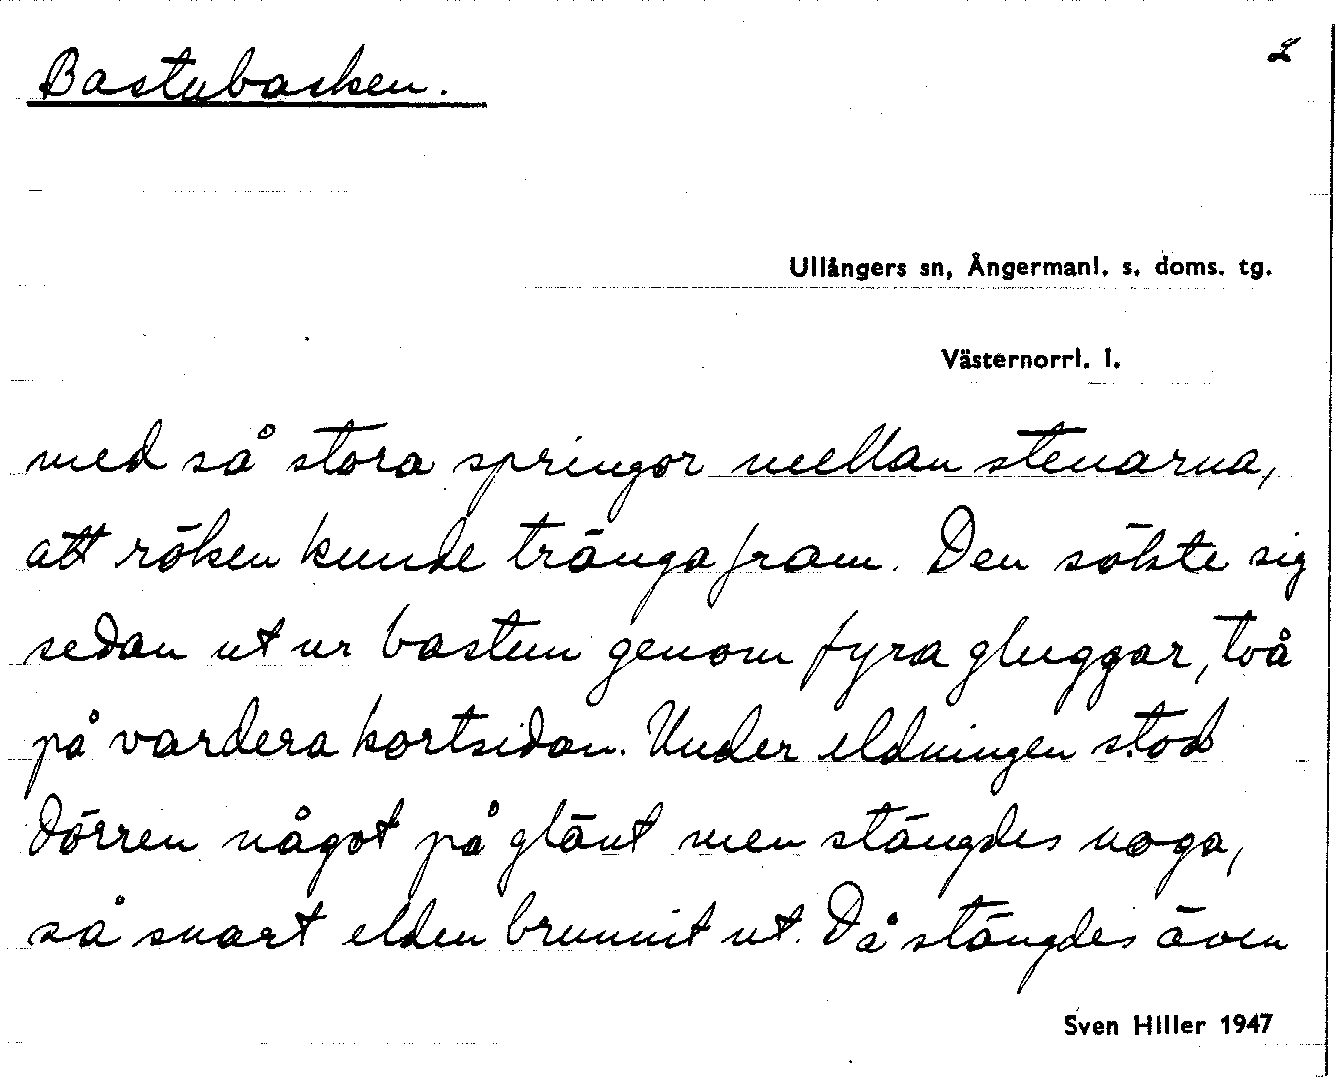 Bastubacken.
2
Ullångers sn, Ångermanl. s. doms. tg.
Västernorrl. l.
med så stora springor mellan stenarna,
att röken kunde tränga fram. Den sökte sig
sedan ut ur bastun genom fyra gluggar, två
på vardera kortsidan. Under eldningen stod
dörren något på glänt men stängdes noga,
så snart elden brunnit ut. Då stängdes även
Sven Hiller 1947